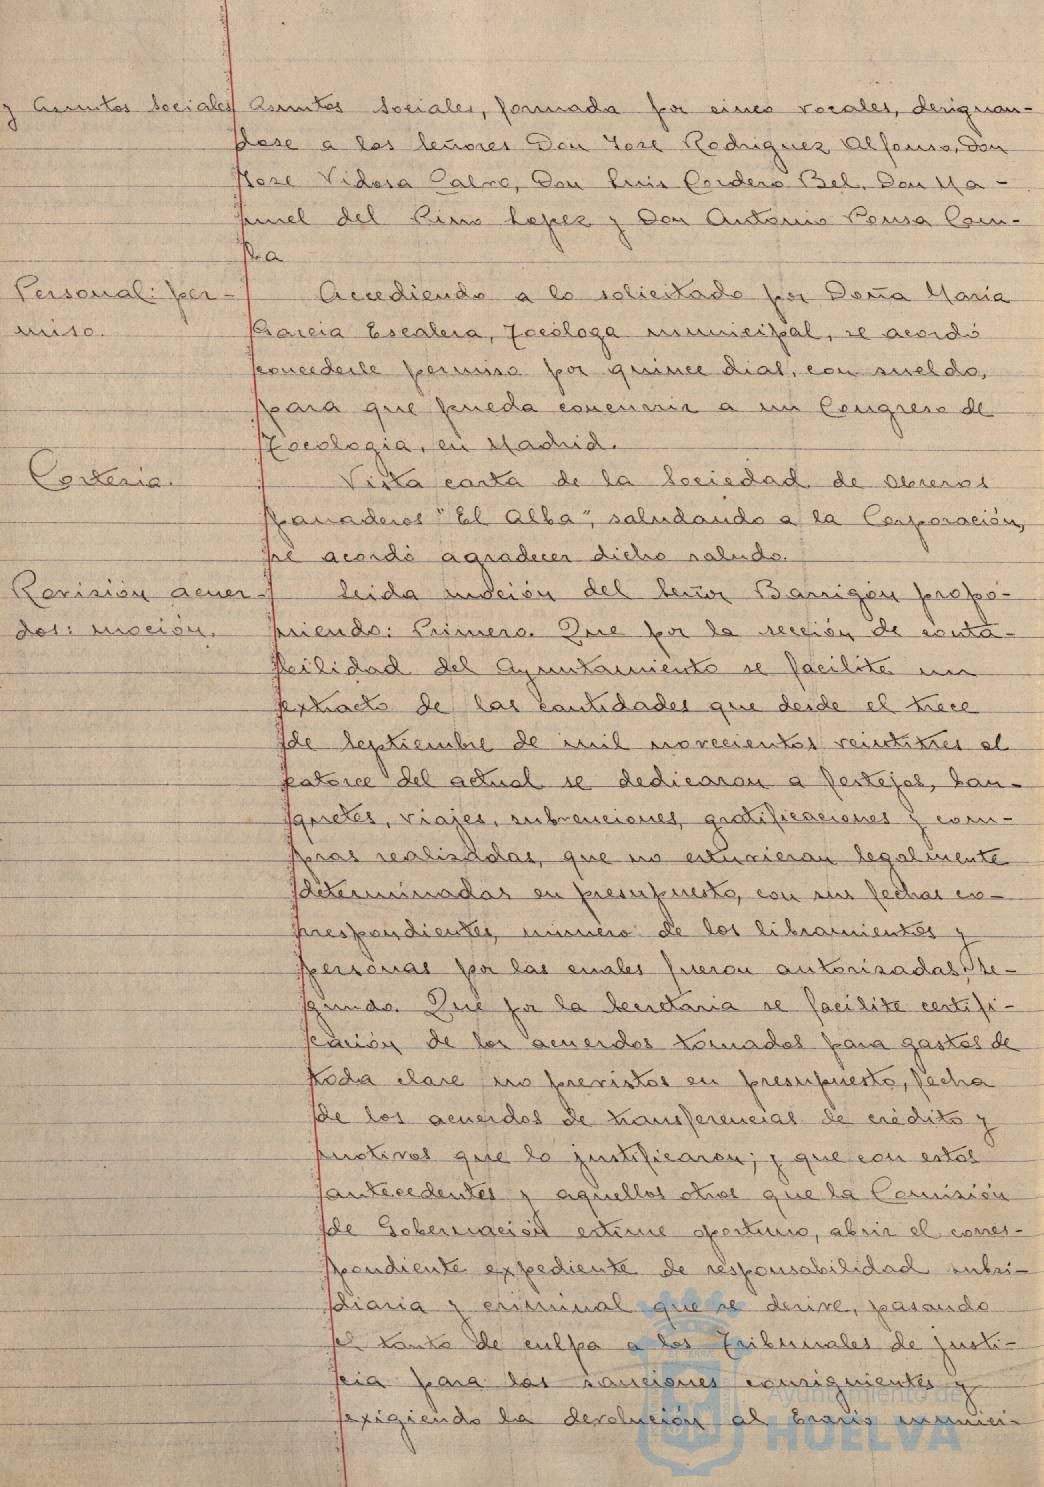 y Asuntos Sociales
Asuntos Sociales, formada por cinco vocales, designan-
dose a los Señores Don Jose Rodriguez Alfonso, Don
Jose Vidosa Calvo, Don Luis Cordero Bel, Don Ma-
nuel del Pino Lopez y Don Antonio Ponsa Com-
ba
Personal: per-
miso.
Accediendo a lo solicitado por Doña María
Garcia Escalera, Tocóloga municipal, se acordó
concederle permiso por quince dias, con sueldo,
para que pueda concurrir a un Congreso de
Tocologia, en Madrid.
Cortesia.
Vista carta de la Sociedad de Obreros
panaderos "El Alba", saludando a la Corporación,
se acordó agradecer dicho saludo.
Revisión acuer-
dos: moción.
Leida moción del Señor Barrigón propo-
niendo: Primero. Que por la sección de conta-
bilidad del Ayuntamiento se facilite un
extracto de las cantidades que desde el trece
de Septiembre de mil novecientos veintitres al
catorce del actual se dedicaron a festejos, ban-
quetes, viajes, subvenciones, gratificaciones y com-
pras realizadas, que no estuvieran legalmente
determinadas en presupuesto, con sus fechas co-
rrespondientes, número de los libramientos y
personas por las cuales fueron autorizadas; Se-
gundo. Que por la Secretaria se facilite certifi-
cación de los acuerdos tomados para gastos de
toda clase no previstos en presupuesto, fecha
de los acuerdos de transferencias de crédito y
motivos que lo justificaron; y que con estos
antecedentes y aquellos otros que la Comisión
de Gobernación estime oportuno, abrir el corres-
pondiente expediente de responsabilidad subsi-
diaria y criminal que se derive, pasando
el tanto de culpa a los Tribunales de justi-
cia para las sanciones consiguientes y
exigiendo la devolución al Erario munici-
Ayuntamiento de
HUELVA